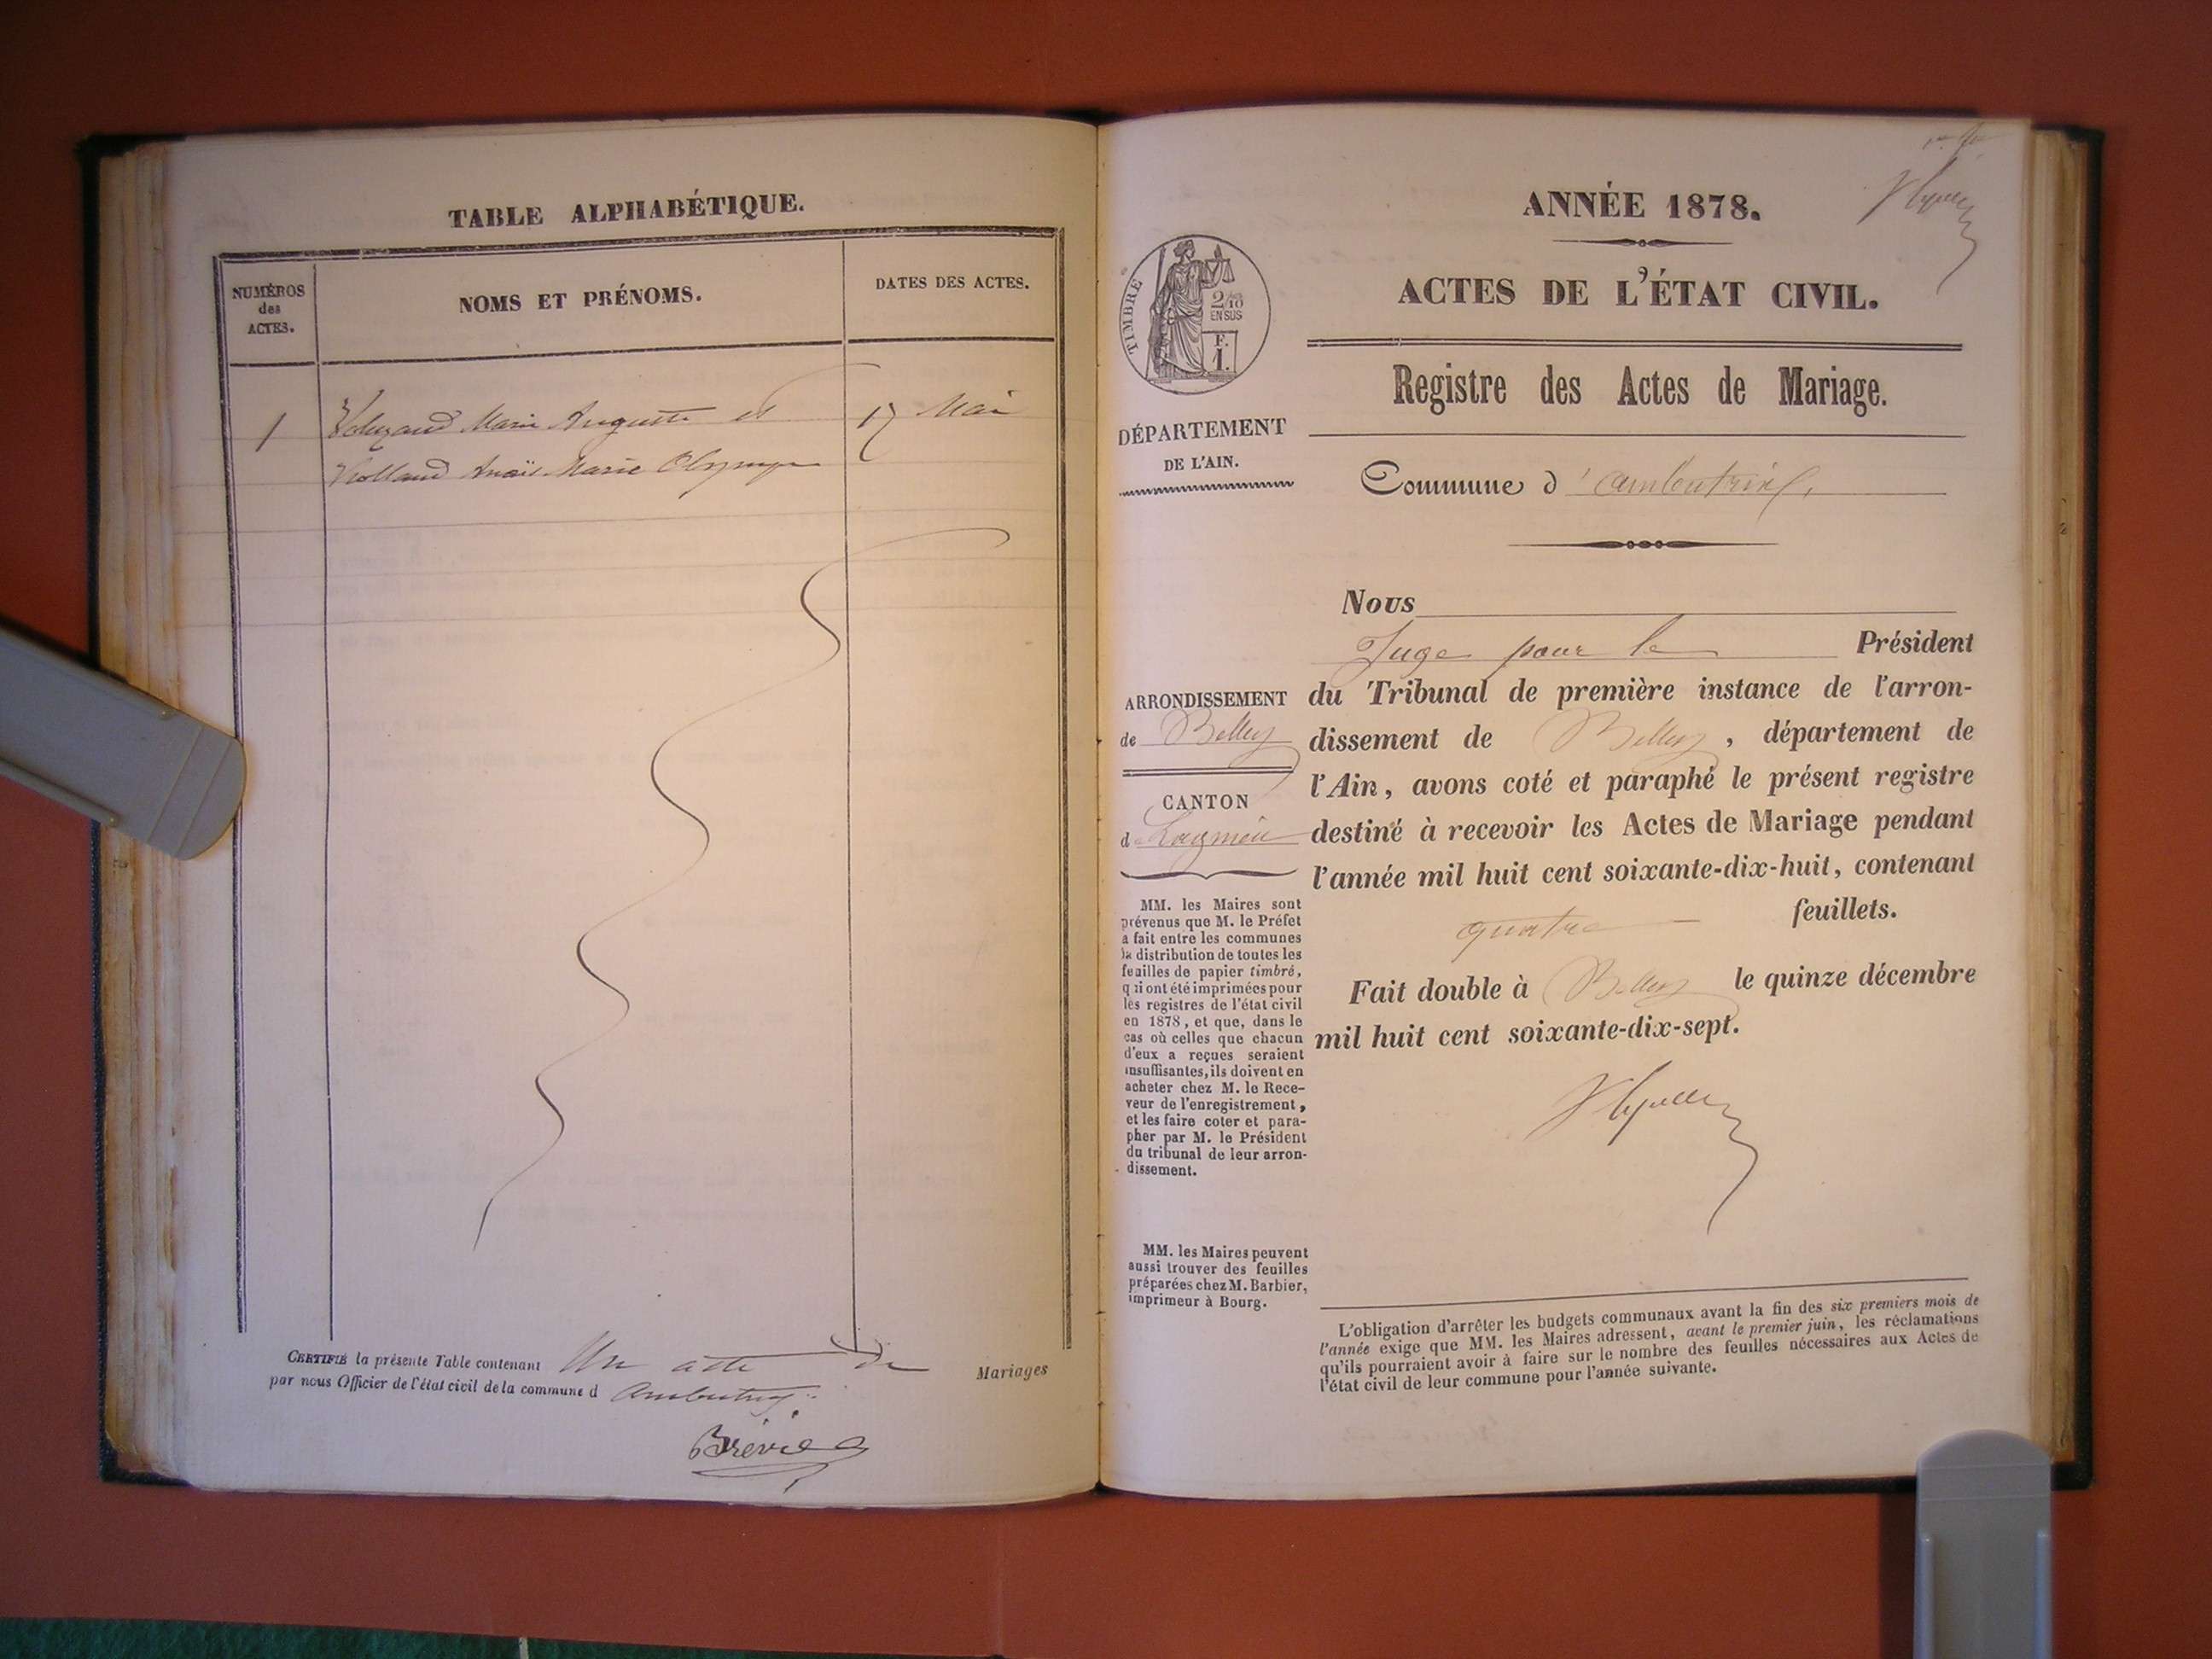 TABLE ALPHABÉTIQUE.
NUMÉROS
des
ACTES.
NOMS ET PRÉNOMS.
DATES DES ACTES.
1
Marie Auguste et
17 Mai
Violland Anaïs Marie Olympe
CERTIFIÉ la présente Table contenant Un acte de Mariages
par nous Officier de l'état civil de la commune d Ambutrix
ANNÉE 1878.
ACTES DE L'ÉTAT CIVIL.
Registre des Actes de Mariage.
TIMBRE
2/10
EN SUS
F.
1.
DÉPARTEMENT
DE L'AIN.
Commune d'ambutrix,
Nous
Juge pour le Président
du Tribunal de première instance de l'arron-
dissement de Belley, département de
l'Ain, avons coté et paraphé le présent registre
destiné à recevoir les Actes de Mariage pendant
l'année mil huit cent soixante-dix-huit, contenant
quatre feuillets.
Fait double à Belley le quinze décembre
mil huit cent soixante-dix-sept.
ARRONDISSEMENT
de Belley
CANTON
de Lagnieu
MM. les Maires sont
prévenus que M. le Préfet
a fait entre les communes
la distribution de toutes les
feuilles de papier timbré,
qui ont été imprimées pour
les registres de l'état civil
en 1878, et que, dans le
cas où celles que chacun
d'eux a reçues seraient
insuffisantes, ils doivent en
acheter chez M. le Rece-
veur de l'enregistrement,
et les faire coter et para-
pher par M. le Président
du tribunal de leur arron-
dissement.
MM. les Maires peuvent
aussi trouver des feuilles
préparées chez M. Barbier,
imprimeur à Bourg.
L'obligation d'arrêter les budgets communaux avant la fin des six premiers mois de
l'année exige que MM. les Maires adressent, avant le premier juin, les réclamations
qu'ils pourraient avoir à faire sur le nombre des feuilles nécessaires aux Actes de
l'état civil de leur commune pour l'année suivante.